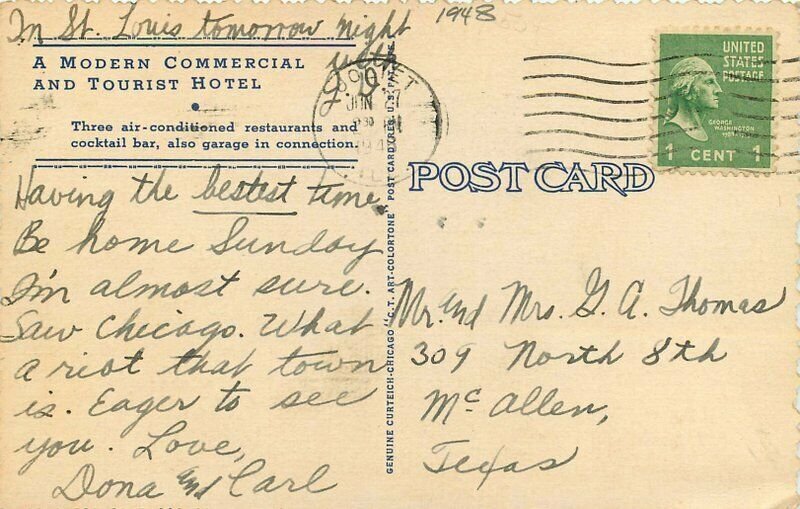 In St. Louis tomorrow night
1948
A MODERN COMMERCIAL
AND TOURIST HOTEL
Three air-conditioned restaurants and
cocktail bar, also garage in connection.
Having the bestest time
Be home Sunday
I'm almost sure.
Saw Chicago. What
a riot that town
is. Eager to see
you. Love,
Dona and Carl
GENUINE CURTEICH-CHICAGO "C.T. ART-COLORTONE" POST CARD (REG. U.S. PAT. OFF.)
JUN
UNITED
STATES
POSTAGE
GEORGE
WASHINGTON
1 CENT 1
POST CARD
Mr. and Mrs. G. A. Thomas
309 North 8th
McAllen,
Texas